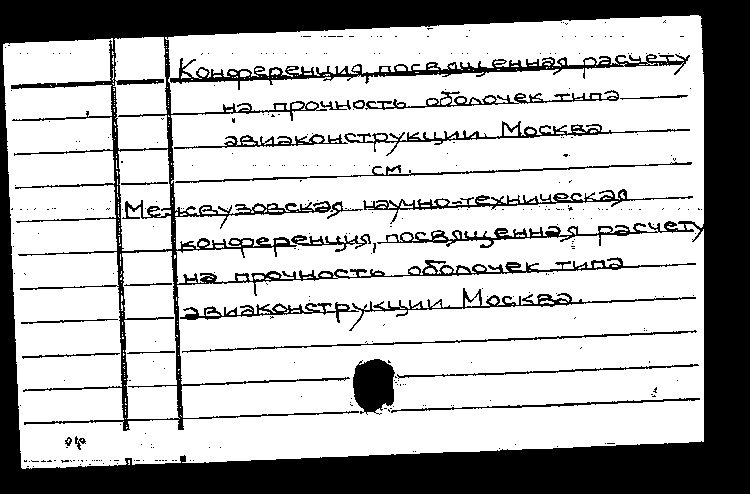 Конференция, посвященная расчету
на прочность оболочек типа
авиаконструкции. Москва.
см.
Межвузовская научно-техническая
конференция, посвященная расчету
на прочность оболочек типа
авиаконструкции. Москва.